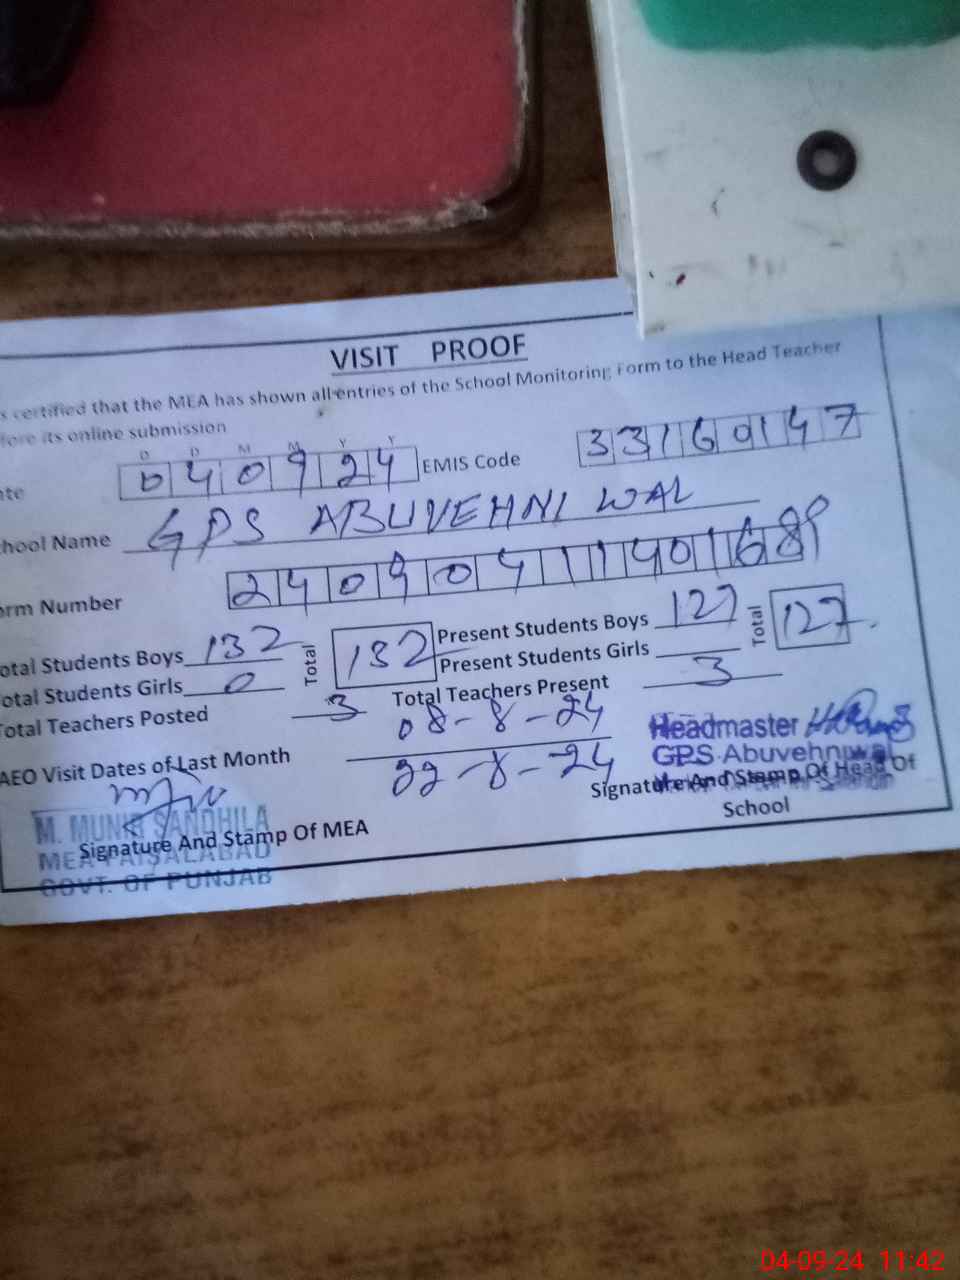 VISIT PROOF
s certified that the MEA has shown all entries of the School Monitoring Form to the Head Teacher
fore its online submission
D D M M Y Y
ate 040924 EMIS Code 33160147
hool Name GPS ABUVEHNI WAL
orm Number 24090411401689
otal Students Boys 132 Total 132 Present Students Boys 127 Total 127
otal Students Girls 0 Present Students Girls
Total Teachers Posted 3 Total Teachers Present 3
AEO Visit Dates of Last Month 08-8-24
22-8-24
Headmaster
GPS Abuvehniwal
Signature And Stamp Of Head Of
School
M. MUNIR SANDHILA
Signature And Stamp Of MEA
MEA FAISALABAD
GOVT. OF PUNJAB
04-09-24 11:42